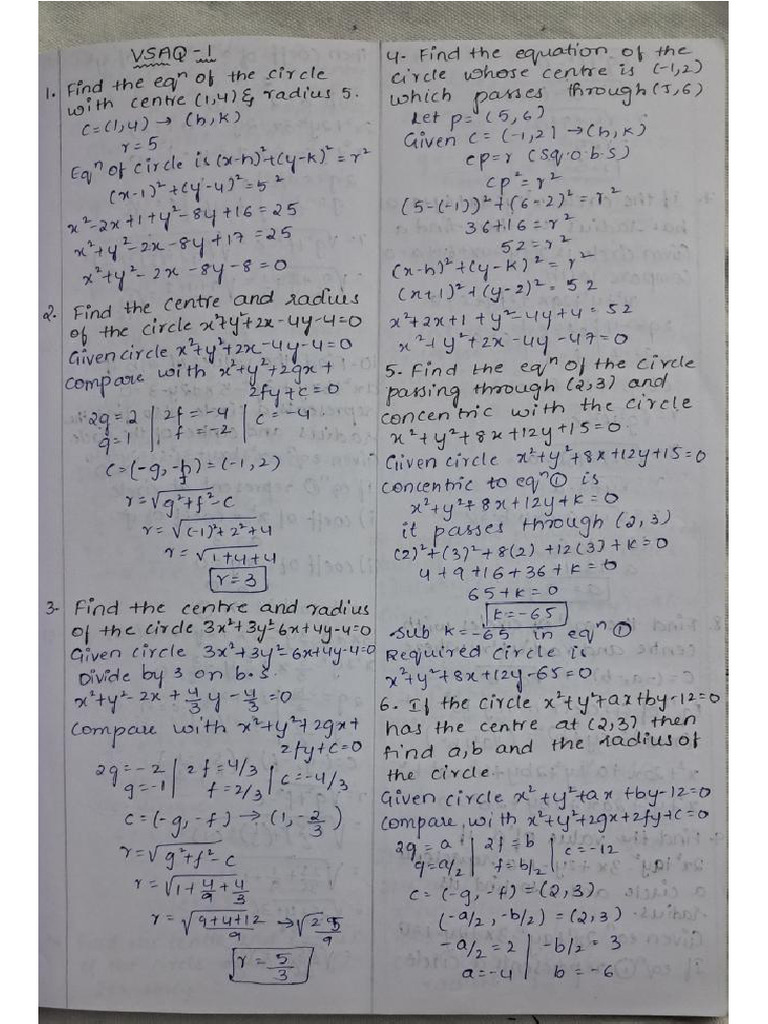 VSAQ-1
1. Find the eqⁿ of the circle
with centre (1,4) & radius 5.
c=(1,4) → (h,k)
r=5
Eqⁿ of circle is (x-h)²+(y-k)²=r²
(x-1)²+(y-4)²=5²
x²-2x+1+y²-8y+16=25
x²+y²-2x-8y+17=25
x²+y²-2x-8y-8=0
2. Find the centre and radius
of the circle x²+y²+2x-4y-4=0
Given circle x²+y²+2x-4y-4=0
compare with x²+y²+2gx+
2fy+c=0
2g=2 | 2f=-4 | c=-4
g=1 | f=-2
c=(-g,-f)=(-1,2)
r=√g²+f²-c
r=√(-1)²+2²+4
r=√1+4+4
r=3
3. Find the centre and radius
of the circle 3x²+3y²-6x+4y-4=0
Given circle 3x²+3y²-6x+4y-4=0
Divide by 3 on b.s
x²+y²-2x+4/3 y-4/3=0
compare with x²+y²+2gx+
2fy+c=0
2g=-2 | 2f=4/3 | c=-4/3
g=-1 | f=2/3
c=(-g,-f) → (1,-2/3)
r=√g²+f²-c
r=√1+4/9+4/3
r=√9+4+12/9 → √25/9
r=5/3
4. Find the equation of the
circle whose centre is (-1,2)
which passes through (5,6)
Let p=(5,6)
Given c=(-1,2) → (h,k)
cp=r (sq.o.b.s)
cp²=r²
(5-(-1))²+(6-2)²=r²
36+16=r²
52=r²
(x-h)²+(y-k)²=r²
(x+1)²+(y-2)²=52
x²+2x+1+y²-4y+4=52
x²+y²+2x-4y-47=0
5. Find the eqⁿ of the circle
passing through (2,3) and
concentric with the circle
x²+y²+8x+12y+15=0.
Given circle x²+y²+8x+12y+15=0
concentric to eqⁿ① is
x²+y²+8x+12y+k=0
it passes through (2,3)
(2)²+(3)²+8(2)+12(3)+k=0
4+9+16+36+k=0
65+k=0
k=-65
Sub k=-65 in eqⁿ ①
Required circle is
x²+y²+8x+12y-65=0
6. If the circle x²+y²+ax+by-12=0
has the centre at (2,3) then
find a,b and the radius of
the circle
Given circle x²+y²+ax+by-12=0
compare with x²+y²+2gx+2fy+c=0
2g=a | 2f=b | c=-12
g=a/2 | f=b/2
c=(-g,-f)=(2,3)
(-a/2,-b/2)=(2,3)
-a/2=2 | -b/2=3
a=-4 | b=-6